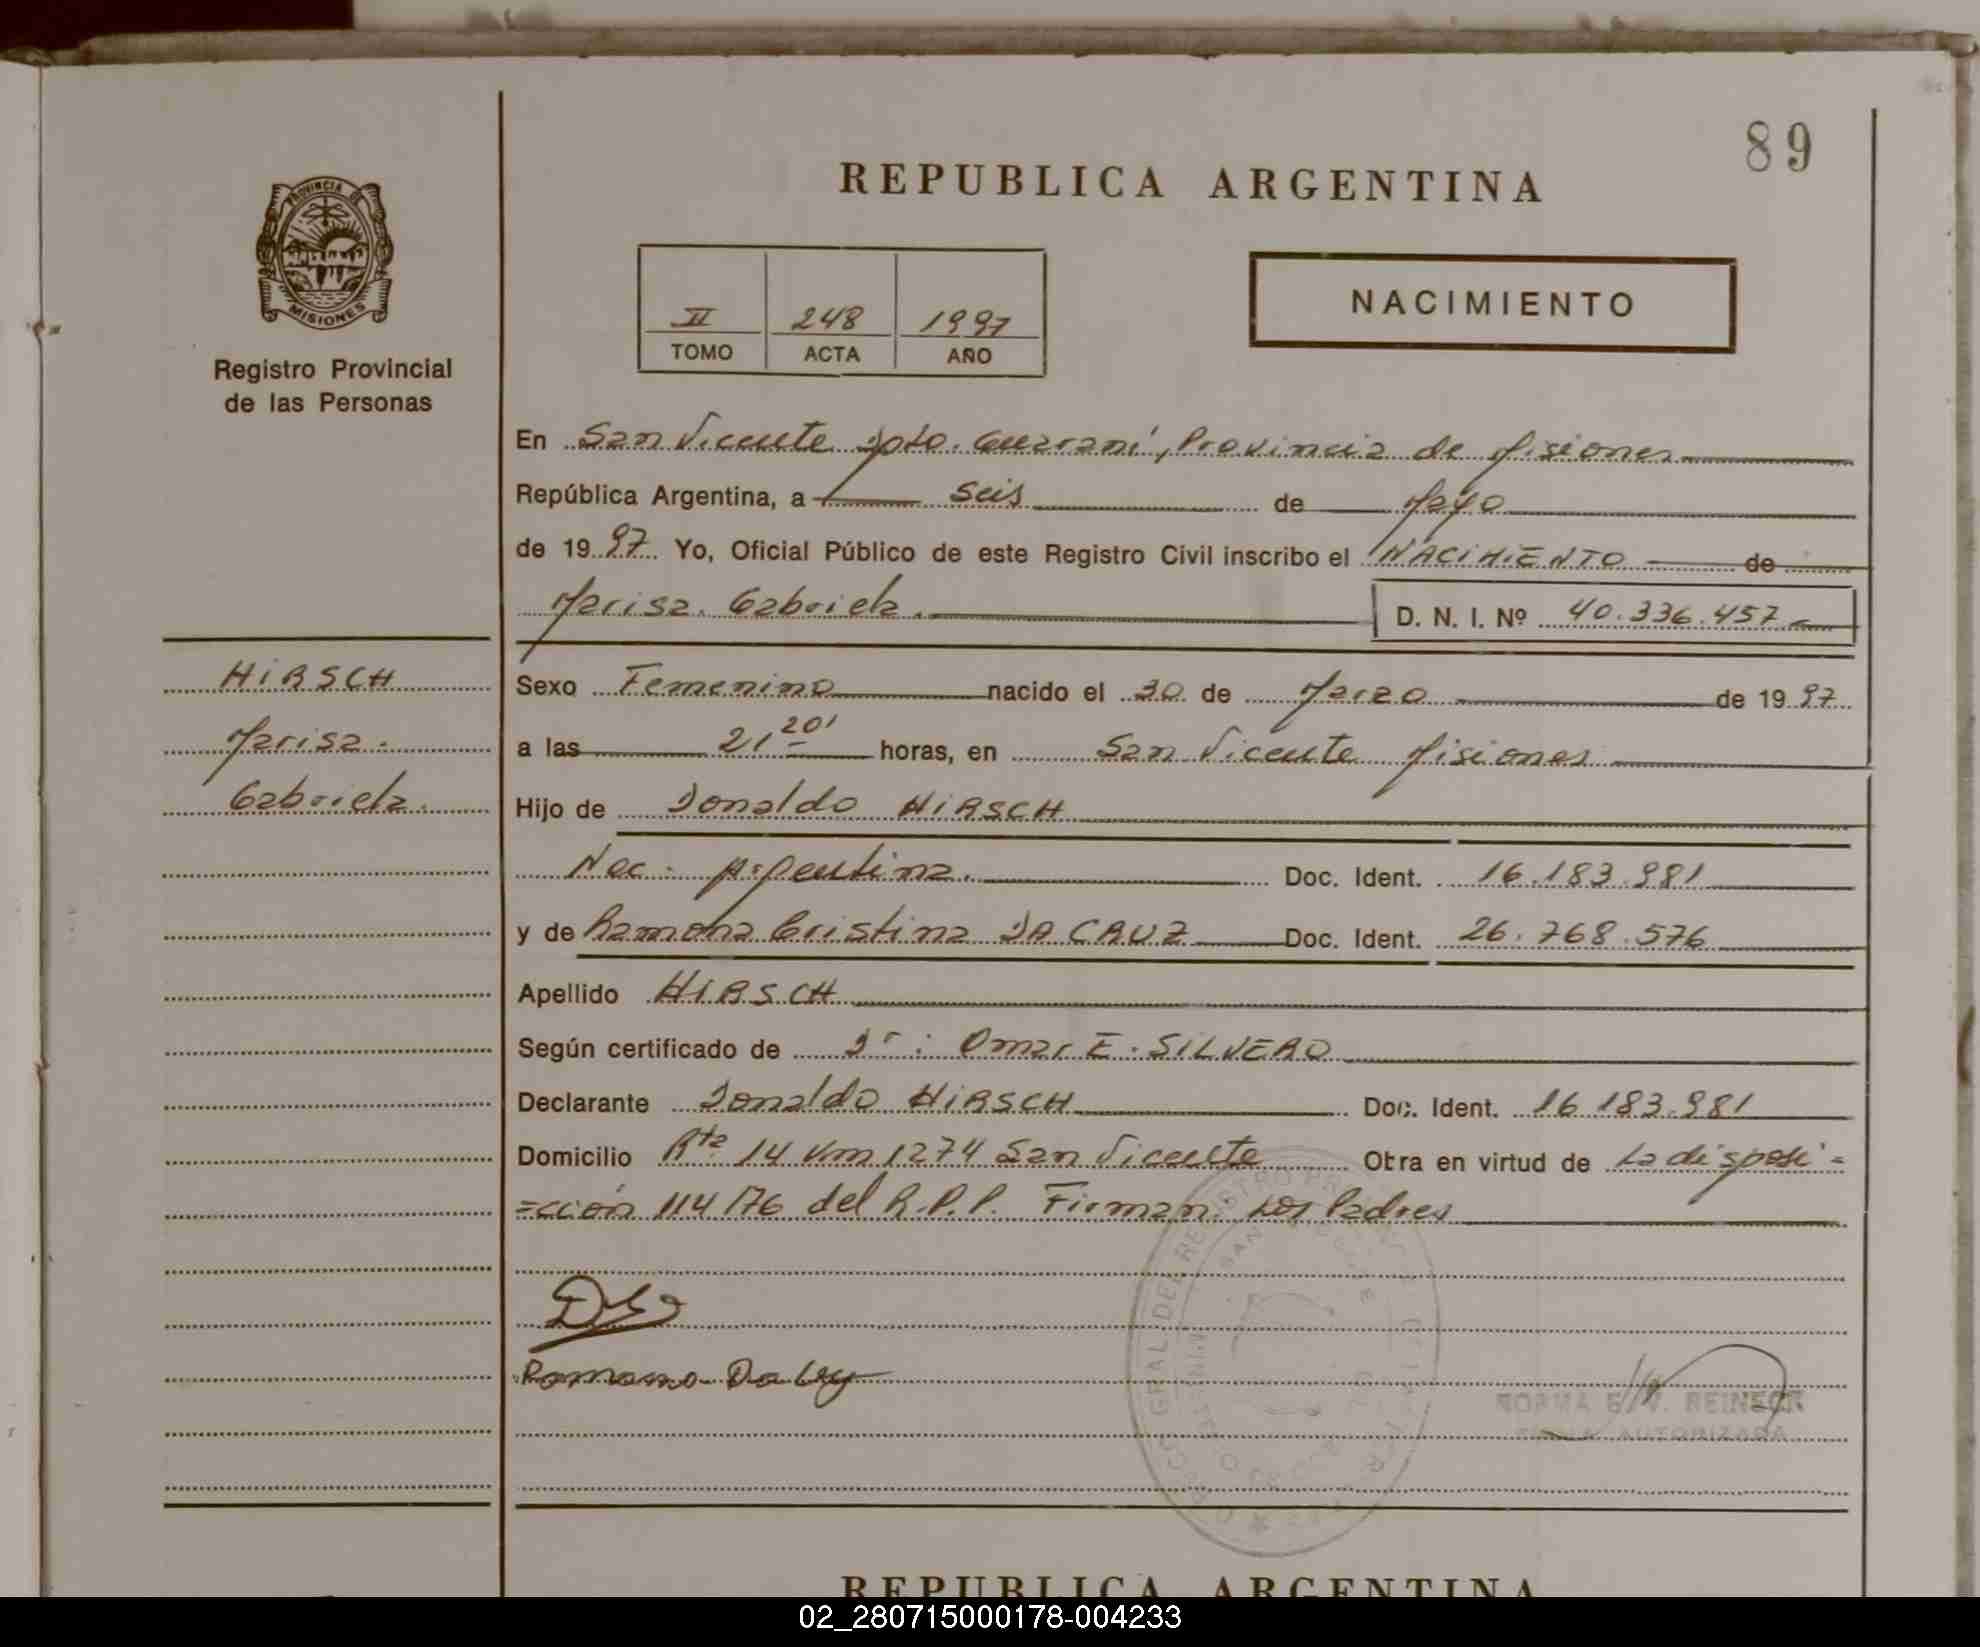 89
REPUBLICA ARGENTINA
PROVINCIA DE
MISIONES
Registro Provincial
de las Personas
II 248 1997
TOMO ACTA AÑO
NACIMIENTO
En San Vicente Dpto. Guaraní, Provincia de Misiones
República Argentina, a seis de Mayo
de 1997 Yo, Oficial Público de este Registro Civil inscribo el NACIMIENTO de
Marisa Gabriela. D. N. I. Nº 40.336.457
HIRSCH
Marisa
Gabriela.
Sexo Femenino nacido el 30 de Marzo de 1997
a las 21 20' horas, en San Vicente Misiones
Hijo de Donaldo HIRSCH
Nac. Argentina. Doc. Ident. 16.183.981
y de Ramona Cristina DA CRUZ Doc. Ident. 26.768.576
Apellido HIRSCH
Según certificado de Dr: Omar E. SILVERO
Declarante Donaldo HIRSCH Doc. Ident. 16 183.981
Domicilio Rta 14 Km 1274 San Vicente Obra en virtud de La disposi=
=ción 114/76 del R.P.P. Firman Los Padres
Ramona Da
NORMA E. V. REINECK
FIRMA AUTORIZADA
REPUBLICA ARGENTINA
02_280715000178-004233